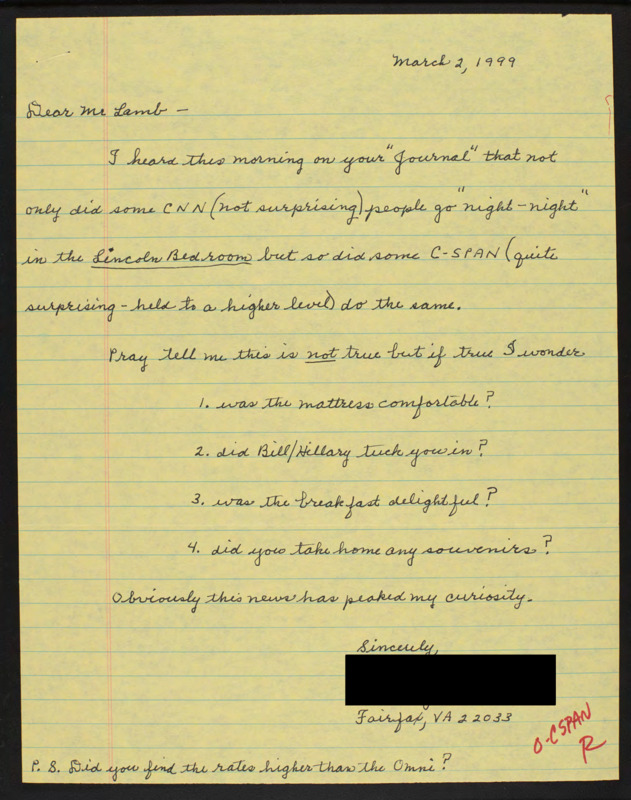 March 2, 1999
Dear Mr Lamb -
I heard this morning on your "Journal" that not
only did some CNN (not surprising) people go "night-night"
in the Lincoln Bedroom but so did some C-SPAN (quite
surprising - held to a higher level) do the same.
Pray tell me this is not true but if true I wonder
1. was the mattress comfortable?
2. did Bill/Hillary tuck you in?
3. was the breakfast delightful?
4. did you take home any souvenirs?
Obviously this news has peaked my curiosity.
Sincerely,
Fairfax, VA 22033
O-CSPAN
R
P. S. Did you find the rates higher than the Omni?